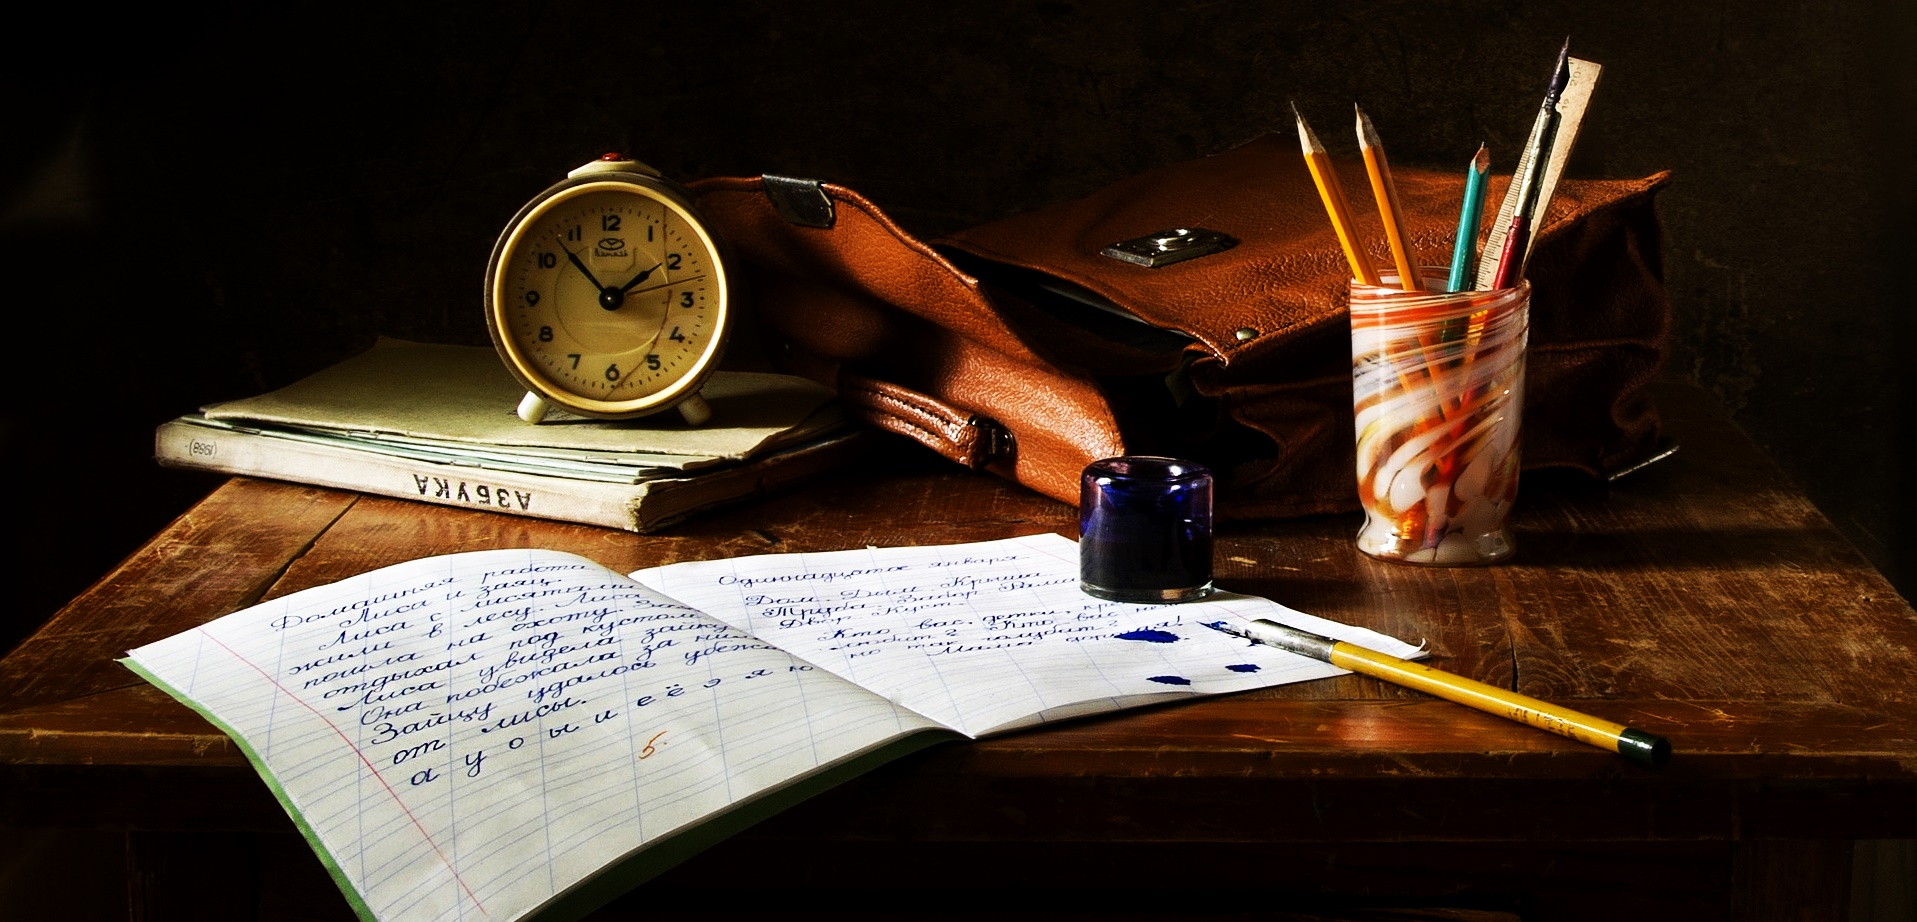 12
1
2
3
4
5
6
7
8
9
10
11
(1988)
АЗБУКА
Домашняя работа
Лиса и заяц.
Лиса с лисятами
жили в лесу. Лиса
пошла на охоту. Заяц
отдыхал под кустом.
Лиса увидела зайку
Она побежала за ним.
Зайцу удалось убежать
от лисы.
а у о ы и е ё э я ю
5.
Одиннадцатое января
Дом. Дым. Крыша
Труба. Забор. Рама
Двор. Куст.
Кто вас, детки,
любит? Кто вас
голубит?
но так
Мама